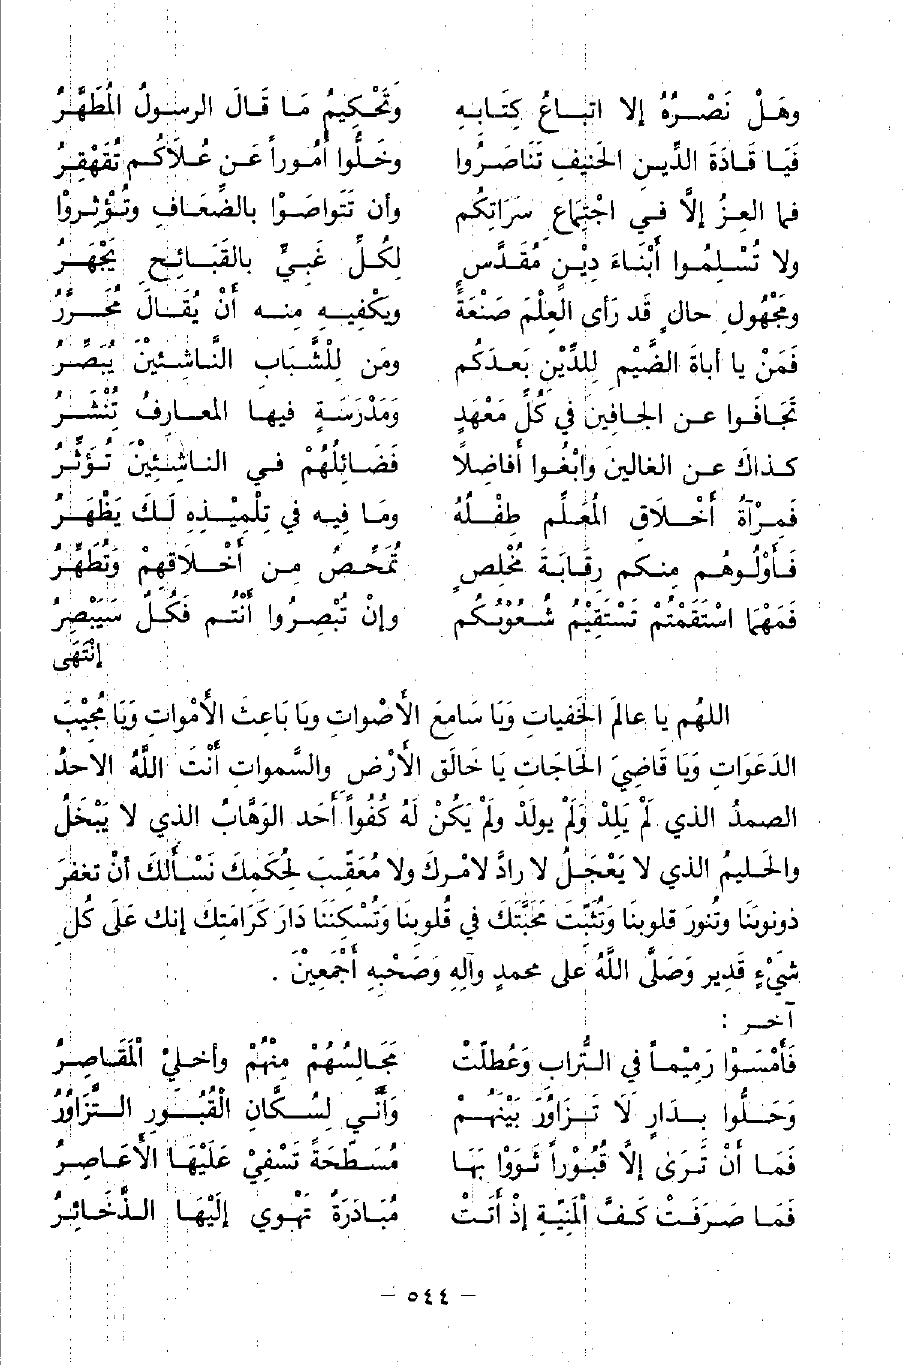 وهَلْ نَصْرُهُ إلا اتباعُ كِتَابه وتَحْكيمُ مَا قَالَ الرسولُ المُطَهَّرُ
فَيَا قَادَةَ الدِّينِ الحَنِيفِ تَنَاصَرُوا وخَلُّوا أُمُوراً عَن عُلاكُم تُقَهْقِرُ
فما العِزُّ إلاَّ فِي اجْتِماعِ سَرَاتِكُم وأن تَتَواصَوْا بالضِّعَافِ وتُؤْثِروْا
ولا تُسْلِمُوا أبْنَاءَ دِيْنٍ مُقَدَّسٍ لِكُلِّ غَبِيٍّ بالقَبَائحِ يَجْهَرُ
ومَجْهُولِ حالٍ قَد رَأى العِلْمَ صَنْعَةً ويكْفِيهِ منه أَنْ يُقَالَ مُحَرِّرُ
فَمَنْ يا أباةَ الضَّيْمِ لِلدِّيْنِ بَعدَكُم ومَن لِلشَّبَابِ النَّاشِئينَ يُبَصِّرُ
تَجَافَوا عن الجَافِينَ في كُلِّ مَعْهَدٍ ومَدْرَسَةٍ فيها المعارفُ تُنْشَرُ
كذاكَ عن الغالينَ وابْغُوا أفَاضِلاً فَضَائِلُهُمْ في الناشِئِيْنَ تُؤَثِّرُ
فَمِرْآةُ أَخْلاقِ المُعَلِّمِ طِفْلُهُ ومَا فِيه في تلْمِيْذِهِ لَكَ يَظْهَرُ
فَأَوْلُوهُم منكم رِقَابَةَ مُخْلِصٍ تُمَحِّصُ من أَخْلاَقِهِمْ وتُطَهِّرُ
فَمَهْمَا اسْتَقَمْتُمْ تَسْتَقِيْمُ شُعُوْبُكُم وإنْ تُبْصِرُوا أنْتُم فَكُلٌّ سَيُبْصِرُ
إنْتَهَى
اللهُم يا عالمَ الخَفِيات وَيَا سَامِعَ الأَصْوات ويَا بَاعِثَ الأَمْواتِ وَيَا مُجِيْبَ
الدَعَوَاتِ وَيَا قَاضِيَ الحَاجَاتِ يَا خَالقَ الأَرْضِ والسَّمواتِ أَنْتَ اللَّهُ الاحدُ
الصمدُ الذي لَمْ يَلِدْ وَلَمْ يولَدْ ولَمْ يَكُنْ لَهُ كُفُواً أَحَد الوَهَّابُ الذي لا يَبْخَلُ
والحَلِيمُ الذي لا يَعْجَلُ لا رادَّ لأمْرِكَ ولا مُعَقِّبَ لحُكمِكَ نَسْأَلكَ أنْ تغفرَ
ذونوبَنَا وتُنورَ قلوبنا وتُثَبِّتَ مَحَبَّتكَ في قُلوبنا وَتُسْكنَنَا دَارَ كَرَامَتِكَ إنك عَلَى كُلِّ
شَيْءٍ قَدِيرٍ وَصَلَّى اللَّهُ على محمدٍ وآلِهِ وَصَحْبِهِ أَجْمَعيْنَ .
آخر :
فَأَمْسَوْا رَمِيْماً في التُّرابِ وَعُطِّلَتْ مَجَالِسُهُمْ مِنْهُمْ وأَخلىْ الْمَقَاصِرُ
وَحَلُّوا بِدَارٍ لاَ تَزَاوُرَ بَيْنَهُمْ وَأَنَّى لِسُكَّانِ الْقُبُورِ التَّزَاوُرُ
فَمَا أنْ تَرَى إلاَّ قُبُوْراً ثَوَوْا بِهَا مُسَطَّحَةً تَسْفِيْ عَلَيْهَا الأَعَاصِرُ
فَمَا صَرَفَتْ كَفَّ الْمَنِيَّةِ إذْ أَتَتْ مُبَادَرَةً تَهْوِي إلَيْهَا الذَّخَائِرُ
– ٥٤٤ –